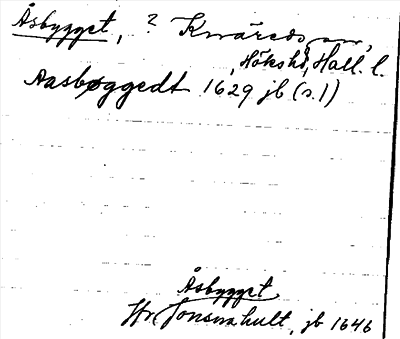 Åsbygget, ? Knäreds sn,
Hökshd, Hall. l.
Aasbøggedt 1629 jb (s.1)
Åsbygget
Hr Jonsmhult, jb 1646